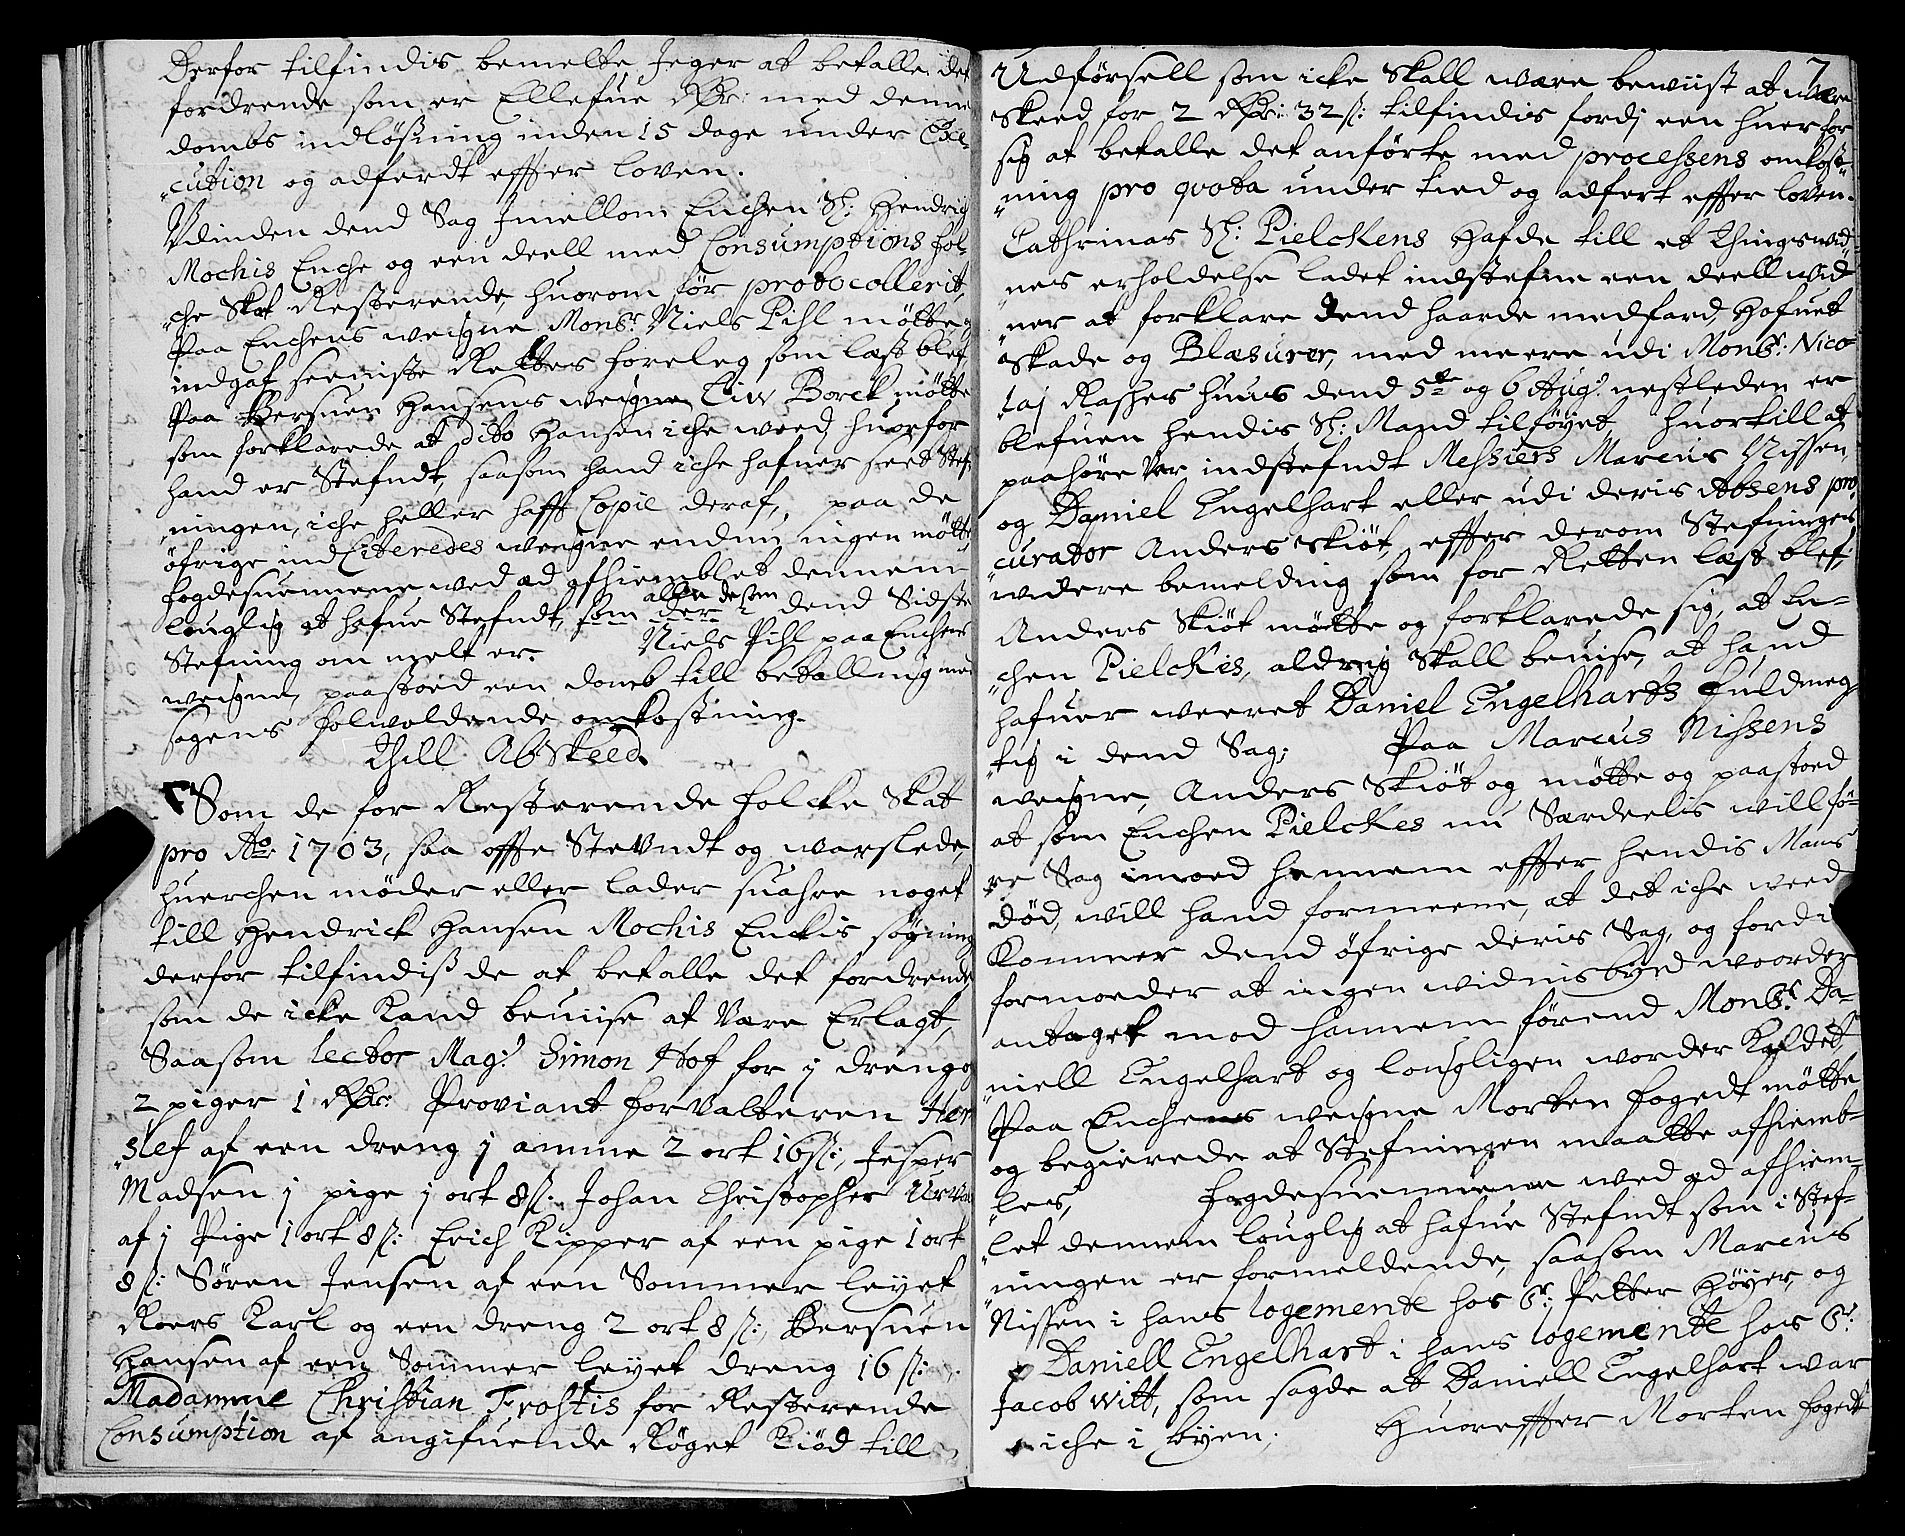 Derfor tilfindis bemelte Jeger at betalle det
fordrende som er Ellefue Rdr: med denne
dombs indløßning inden 15 dage under Exe-
cution og adferdt effter loven.
Udinden dend Sag Jmellom Enchen Sl: Hendrich
Mochis Enche og een deell med Consumptions fol-
che Skat Resterende, huorom før protocollerit,
Paa Enchens weigne Monsr Niels Pihl møtte
indgaf seeniste Rettes foreleg som læst blef
Paa Hansens weigne Liw Borck møtte
som forklarede at dito Hansen iche weed huorfor
hand er Stefndt, saasom hand iche hafuer seet Stef-
ningen, iche heller hafft Copie deraf, paa de
øfrige ind Citeredes weigne endnu ingen møtte
fogdesuennene wed æd afhiemblet dennem
louglig at hafue Stefndt, som der i dend Sidste
alle desen
Stefning om melt er. Niels Pihl paa Enchens
weigne, paastoed een domb till betalling med
sagens holdende omkostning.
Thill Abskeed.
Som de for Resterende folcke Skat
pro Ao: 1703, saa offte Stevndt og warslede,
huerchen møder eller lader suahre noget
till Hendrick Hansen Mochis Enckis søgning
derfor tilfindiß de at betalle det fordrende
som de icke Kand beuise at Være Erlagt,
Saasom lector Mag: Simon Hof for j dreng og
2 piger 1 Rdr: Proviant forValteren Her
slef af een dreng j amme 2 ort 16 s:, Jesper
Madsen j pige j ort 8 s: Johan Christopher
af j Pige 1 ort 8 s: Erich Kipper af een pige 1 ort
8 s: Søren Jensen af een Sommer leyet
Roers Karl og een dreng 2 ort 8 s:,
Hansen af een Sommer leyet dreng 16 s:,
Madamme Christian Frostis for Resterende
Consumption af angifuende Røget Kiød till
7
Udførsell som icke Skall være beviist at være
skeed for 2 Rdr: 32 s: tilfindis fordj een huer for
sig at betalle det anførte med processens omkost-
ning pro qvota under tied og adfert effter loven.
Cathrinas Sl: Pielckens Hafde till et Thingswid-
nes erholdelse ladet indstefne een deell wid-
ner at forklare dend haarde medfard Hofuet
skade og Blæsurer, med meere udi Monsr: Nico-
laj Rashes huus dend 5te og 6 Aug: nestleden er
blefuen hendis Sl: Mand tilføyet, huortill at
paahøre Var indstefndt Messiers Marcus Nissen,
og Daniel Engelhart eller udi deris Absens pro-
curator Anders Skiøt, effter derom Stefningens
widere bemelding som for Retten læst blef,
Anders Skiøt møtte og forklarede sig, at En-
chen Pielckes, aldrig Skall beuise, at hand
hafuer weeret Daniel Engelharts fuldmeg-
tig i dend Sag; Paa Marcus Nissens
weigne, Anders Skiøt og møtte og paastoed
at som Enchen Pielckes nu Særdeelis will fø-
re Sag imoed hannem effter hendis Mans
død, will hand formeene, at det iche weed
kommer dend øfrige deris Sag, og fordi
formoeder at ingen widnisbyrd woorder
antaget mod hannem førend Monsr: Da-
niell Engelhart og lougligen worder Kaldet
Paa Enchens weigne Morten fogedt møtte
og begierede at Stefningen maatte afhiemb-
les, fogdesuennene wed æd afhiem-
let dennem louglig at hafue Stefndt som i Stef-
ningen er formeldende, saasom Marcus
Nissen i hans logemente hos Sr: Petter Høyer, og
Daniell Engelhart i hans logemente hos Sr:
Jacob Witt, som sagde at Daniell Engelhart war
iche i byen; Huoreffter Morten fogedt